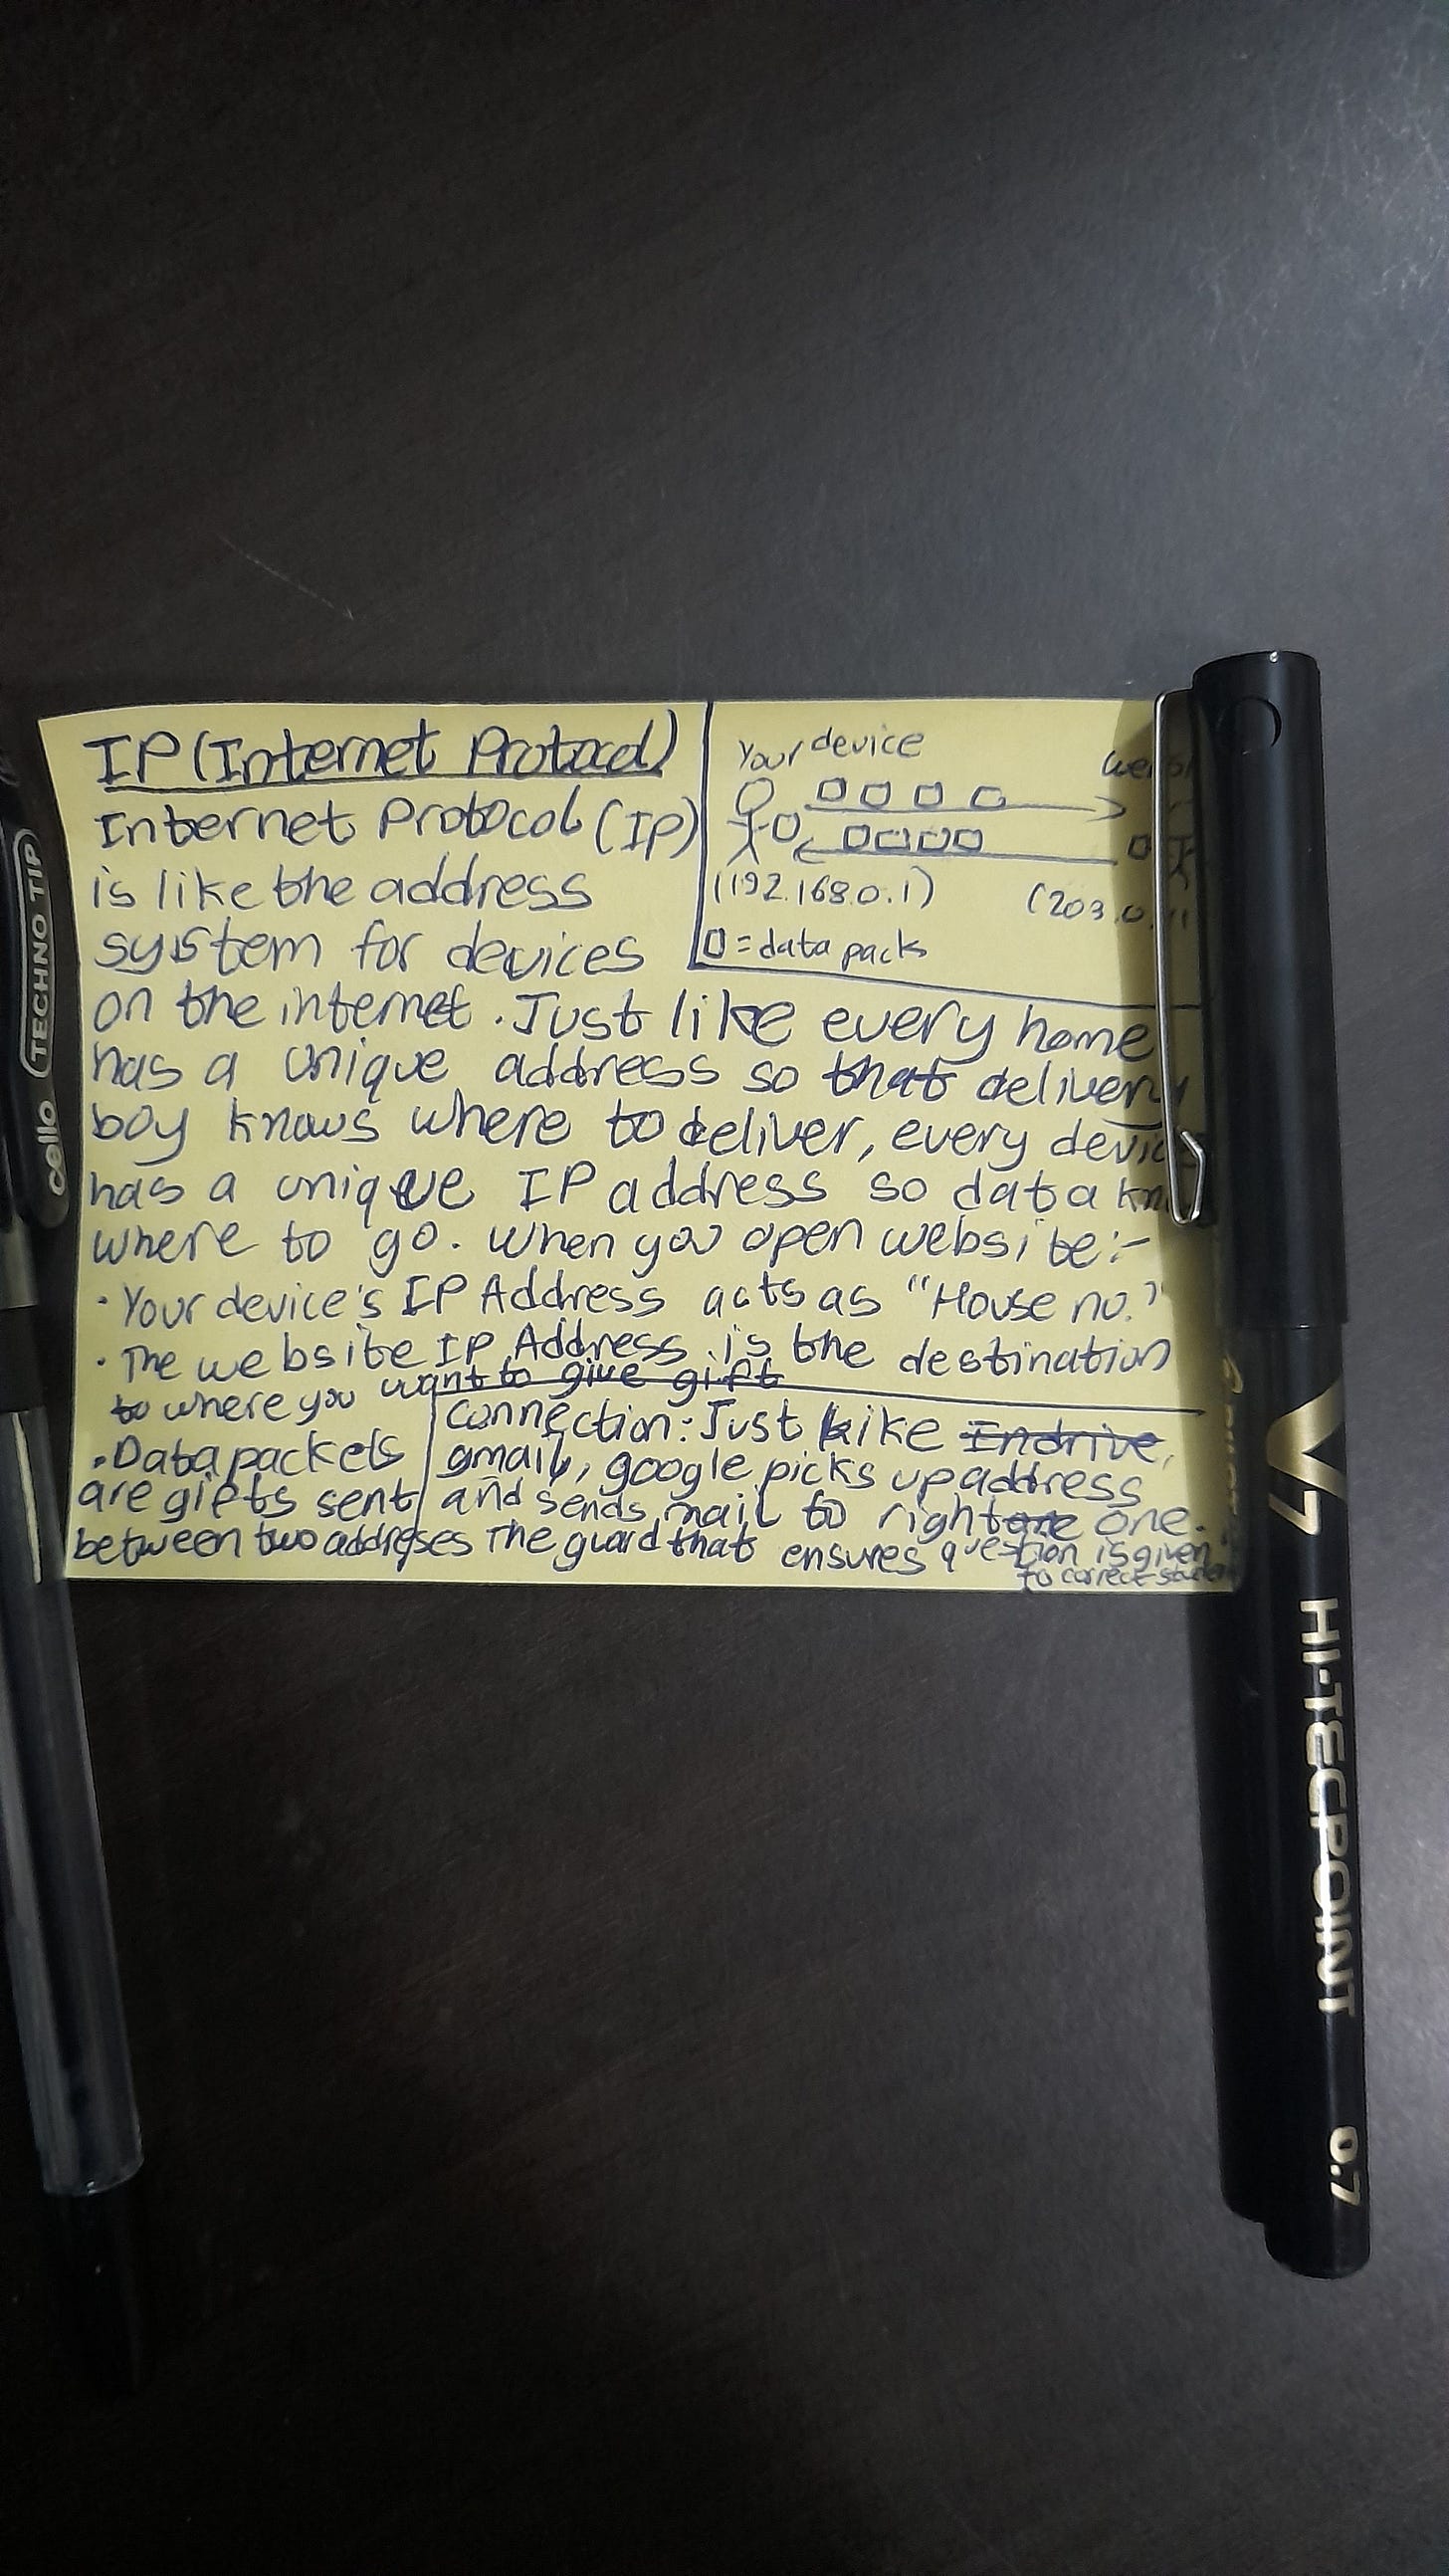 IP (Internet Protocol)
Internet Protocol (IP)
is like the address
system for devices
on the internet. Just like every home
has a unique address so that delivery
boy knows where to deliver, every
has a unique IP address so data
where to go. When you open website:-
· Your device's IP Address acts as "House no."
· The website IP Address is the destination
to where you want to give gift
· Data packets
are gifts sent
between two addresses
Your device
(192.168.0.1)
(203.0.
= data pack
Connection: Just like Indrive,
gmail, google picks up address
and sends mail to right one one.
The guard that ensures question is given
to correct
cello TECHNO TIP
V7 HI-TECPOINT 0.7